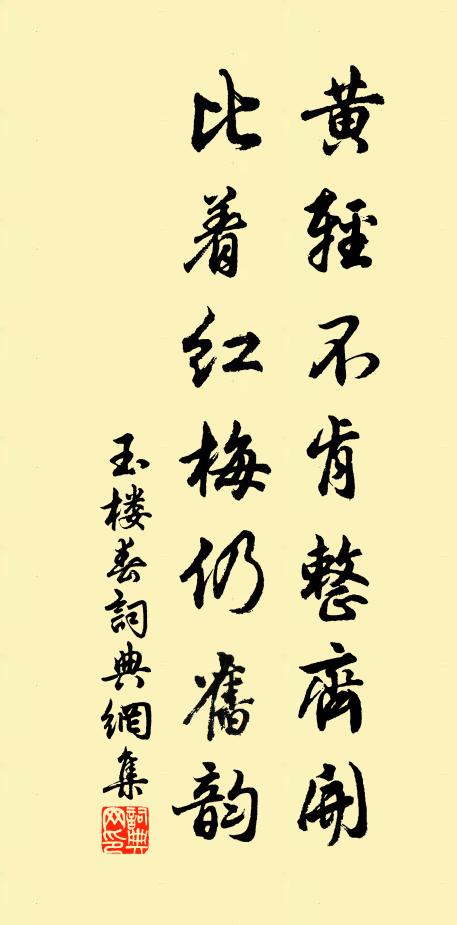 黄輕不肯整齊開
比着红梅仍舊韵
玉楼春詞典網集
詞典网印